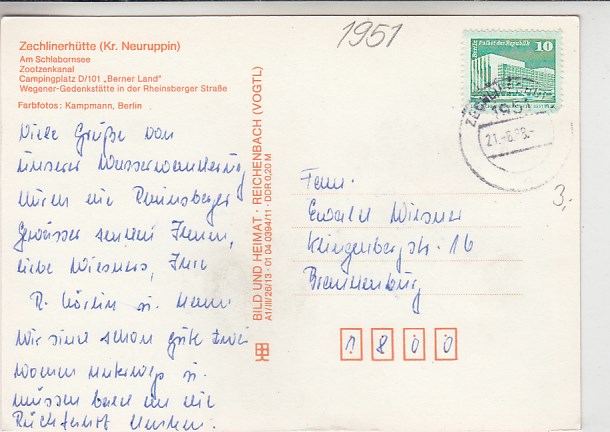 1951
Zechlinerhütte (Kr. Neuruppin)
Am Schlabornsee
Zootzenkanal
Campingplatz D/101 „Berner Land"
Wegener-Gedenkstätte in der Rheinsberger Straße
Farbfotos: Kampmann, Berlin
Viele Grüße von
unserer Wasserwanderung
durch die Rheinsberger
Gewässer senden Ihnen,
liebe Wiesners, Ihre
R. u. Mann
Wir sind schon gute zwei
Wochen unterwegs u.
müssen bald an die
Rückfahrt denken.
BILD UND HEIMAT · REICHENBACH (VOGTL)
A1/III/26/13 · 01 04 0394/11 · DDR 0,20 M
Palast der Republik
10
1951
21.-6.88.-
3,-
Fam.
Ewald Wiesner
Klingenbergstr. 16
Brandenburg
1800